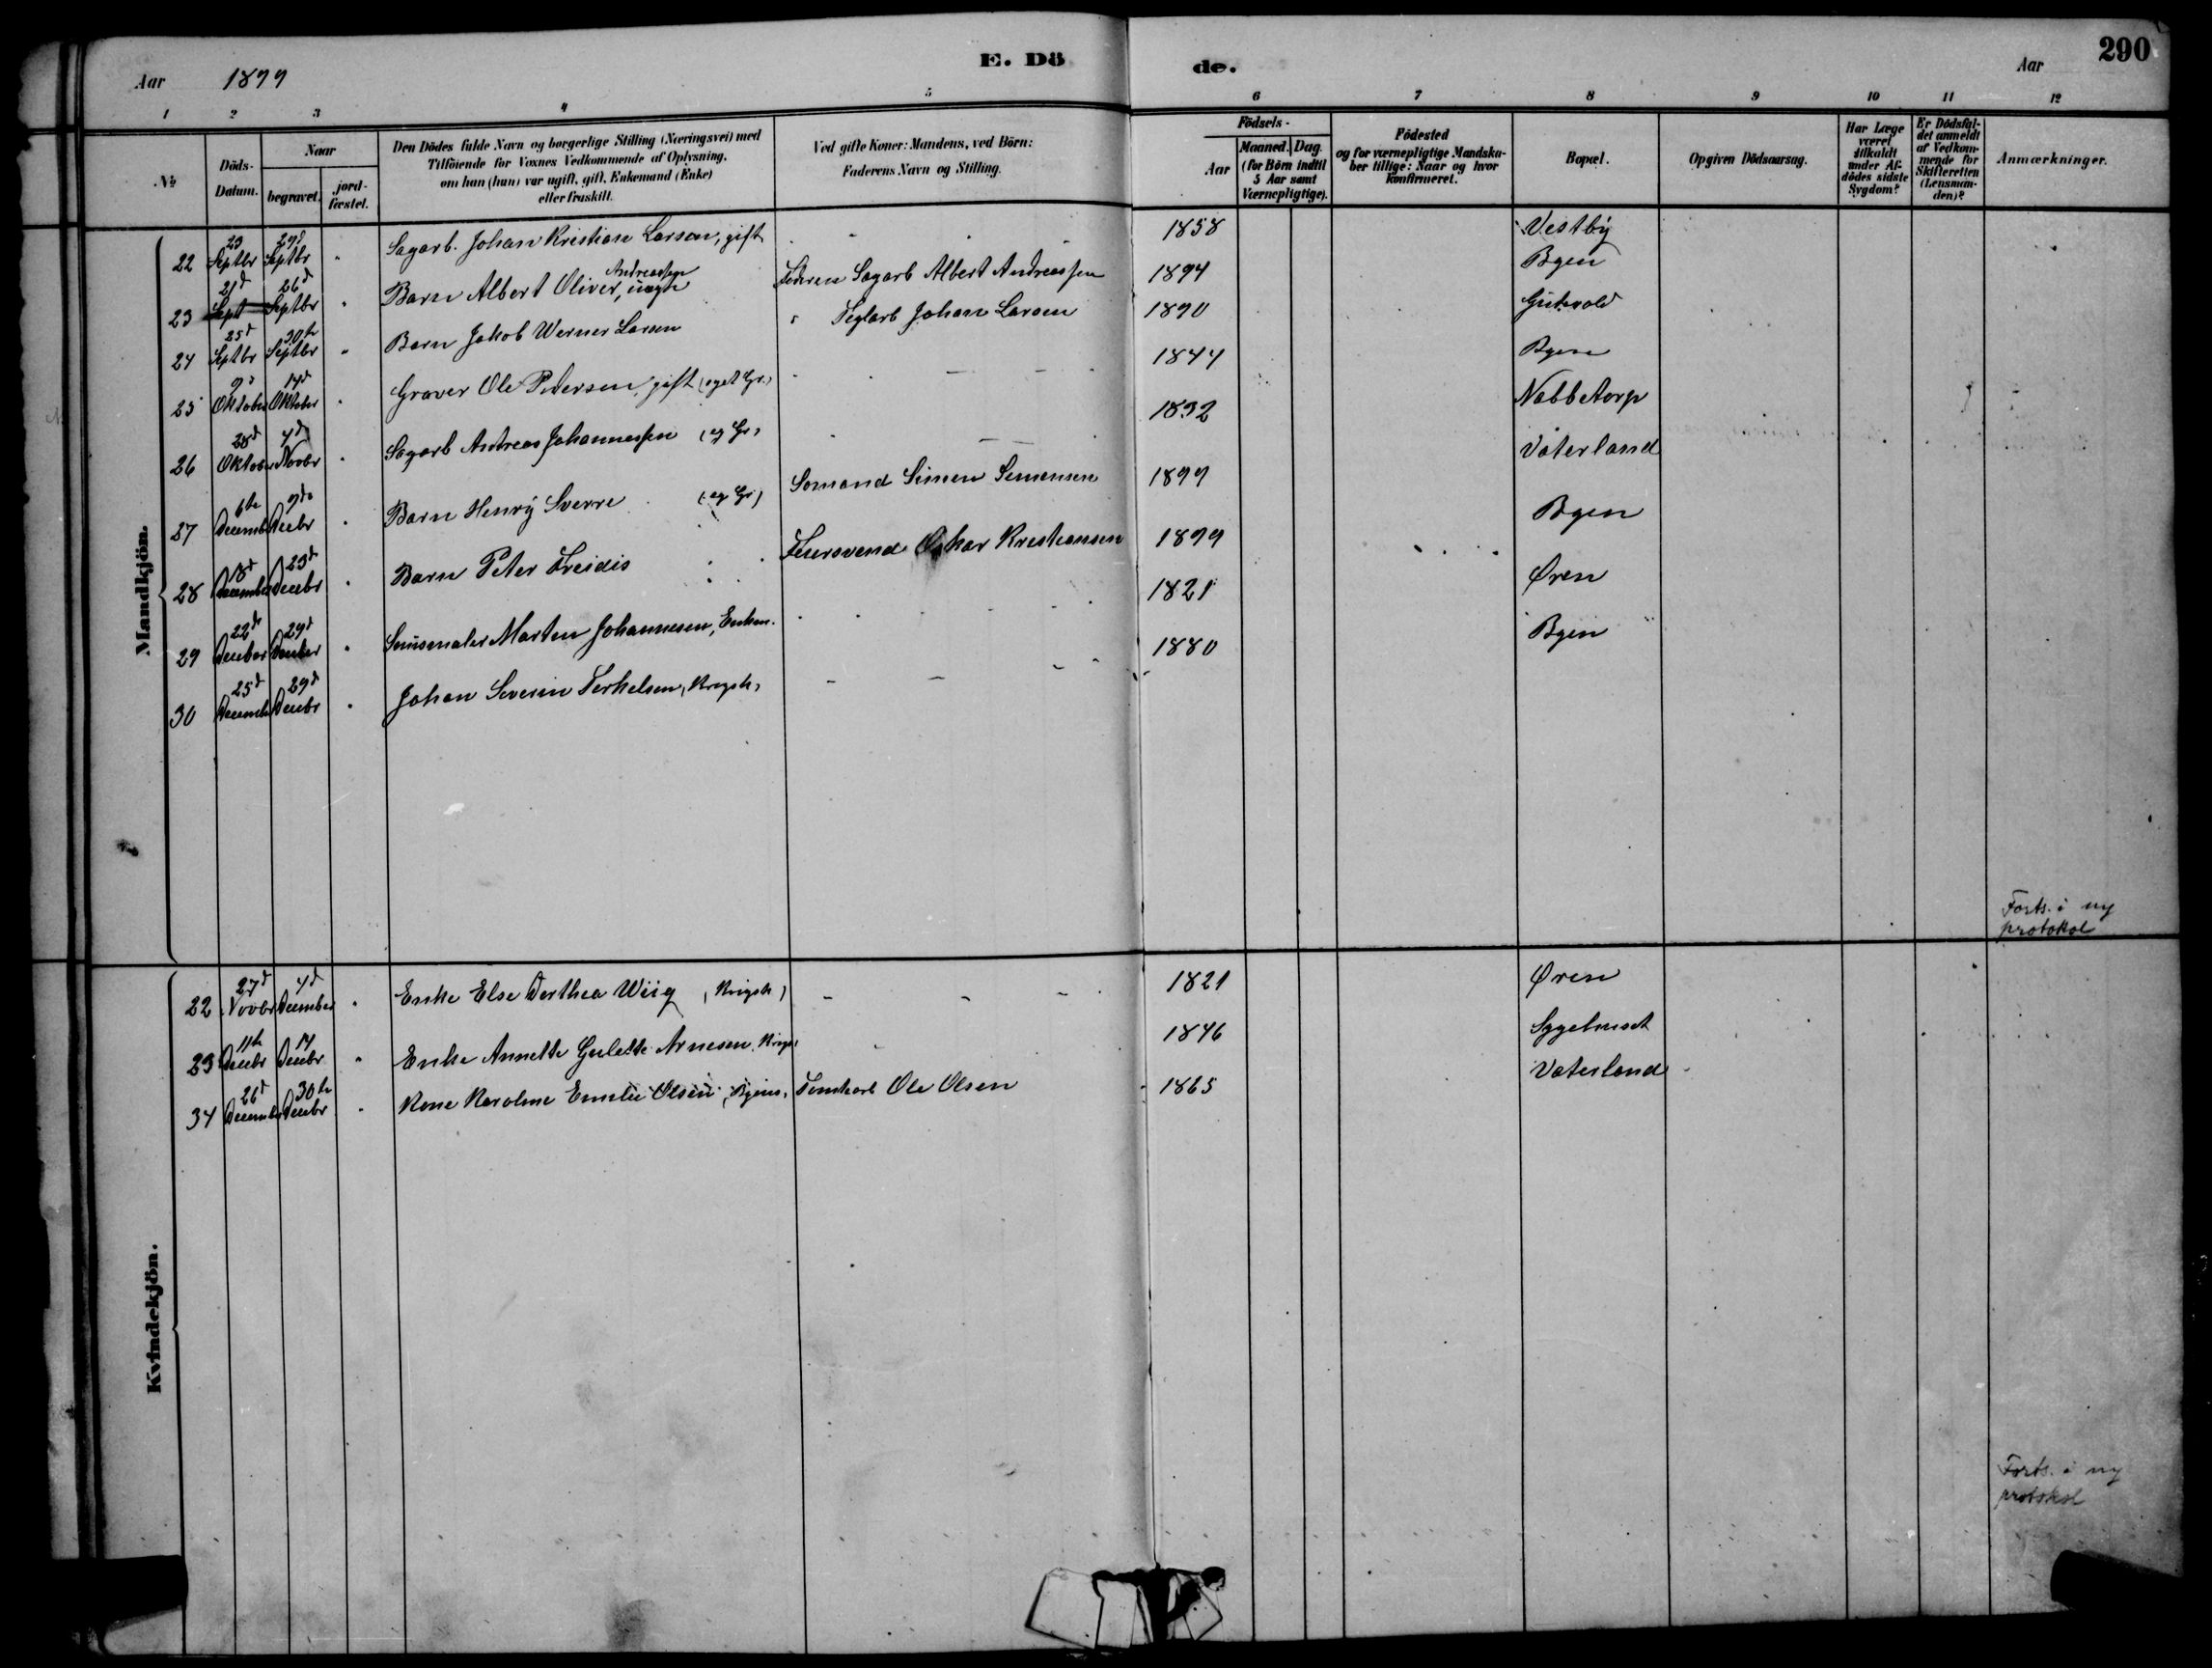 Aar 1899 E. Dö de. Aar 290
1 2 3 4 5 6 7 8 9 10 11 12
No
Döds-Datum.
Naar
begravet.
jord-fæstet.
Den Dödes fulde Navn og borgerlige Stilling (Næringsvei) med
Tilföiende for Voxnes Vedkommende af Oplysning,
om han (hun) var ugift, gift, Enkemand (Enke)
eller fraskilt.
Ved gifte Koner: Mandens, ved Börn:
Faderens Navn og Stilling.
Födsels-
Aar
Maaned. Dag.
(for Börn indtil
5 Aar samt
Værnepligtige).
Födested
og for værnepligtige Mandska-
ber tillige: Naar og hvor
konfirmeret.
Bopæl.
Opgiven Dödsaarsag.
Har Læge
været
tilkaldt
under Af-
dödes sidste
Sygdom?
Er Dödsfal-
det anmeldt
af Vedkom-
mende for
Skifteretten
(Lensman-
den)?
Anmærkninger.
Mandkjön.
22 23 Septbr 29d Septbr " Sagarb. Johan Kristian Larsen, gift 1858 Vestby
23 21d Sept 26d Septbr " Barn Albert Oliver Andreassen, uægte Faderen Sagarb Albert Andreassen 1894 Byen
24 25d Septbr 30te Septbr " Barn Jakob Werner Larsen " Teglarb Johan Larsen 1890
25 9d Oktober 14d Oktober " Graver Ole Petersen, gift (eget Gr.) 1844 Byen
26 28d Oktober 4d Novbr " Sagarb Andreas Johannessen (eg Gr.) 1832 Nabbetorp
27 6te Decemb 9de Decbr " Barn Henry Sverre (eg Gr.) Sømand Simen Simensen 1899 Vaterland
28 18d December 23d Decbr " Barn Peter Freidis Feiersvend Oskar Kristiansen 1899 Byen
29 22de Decber 29d Decber " Marten Johannesen, Enkem. 1821 Øren
30 25d Decemb 29d Decbr " Johan Severin Terkelsen, 1880 Byen
Forts. i ny
protokol
Kvindekjön.
22 27d Novbr 4d December " Enke Else Dorthea Wiig 1821 Øren
23 11te Decbr 14 Decbr " Enke Annette Gulette Arnesen 1846 Sygehuset
34 26d December 30te Decbr " Kone Karoline Emilie Olsen Ole Olsen 1865 Vaterland
Forts. i ny
protokol